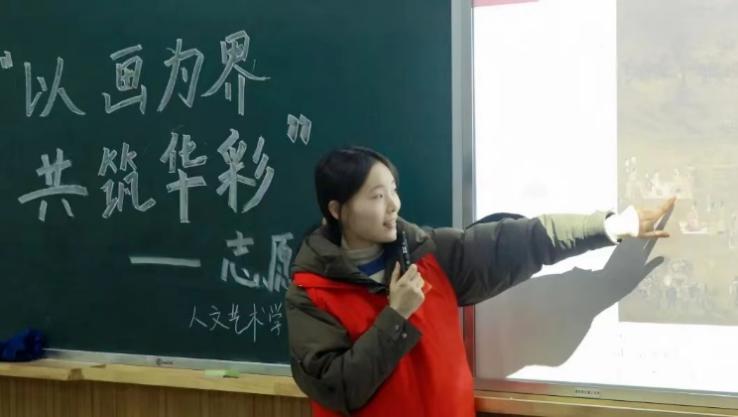 "以画为界
共筑华彩"
——志愿
人文艺术学